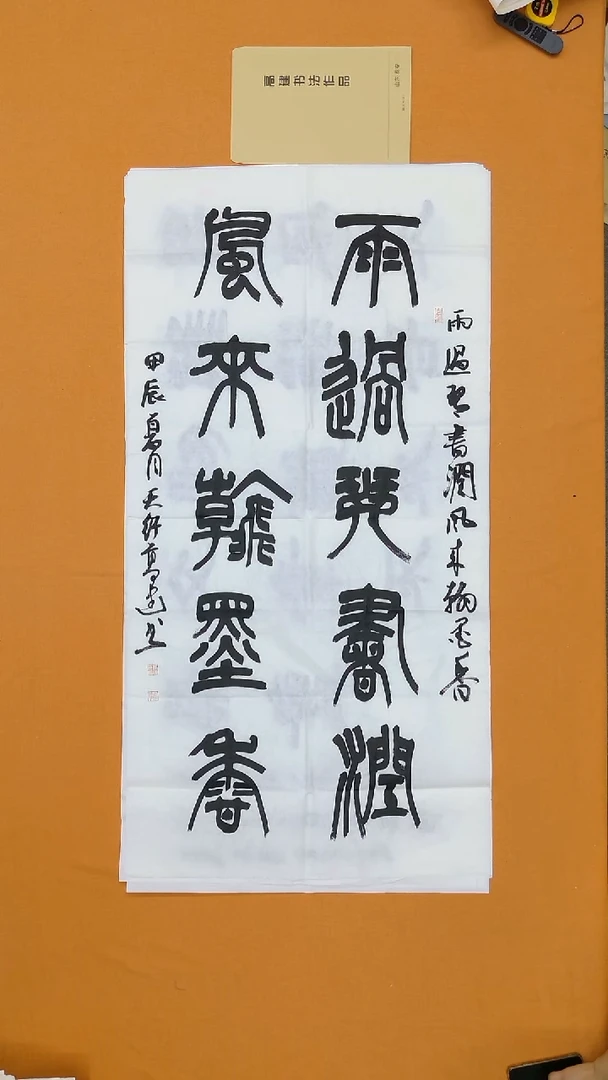 高建书法作品
雨過琴書潤風來翰墨香
雨過琴書潤
風來翰墨香
甲辰夏月天